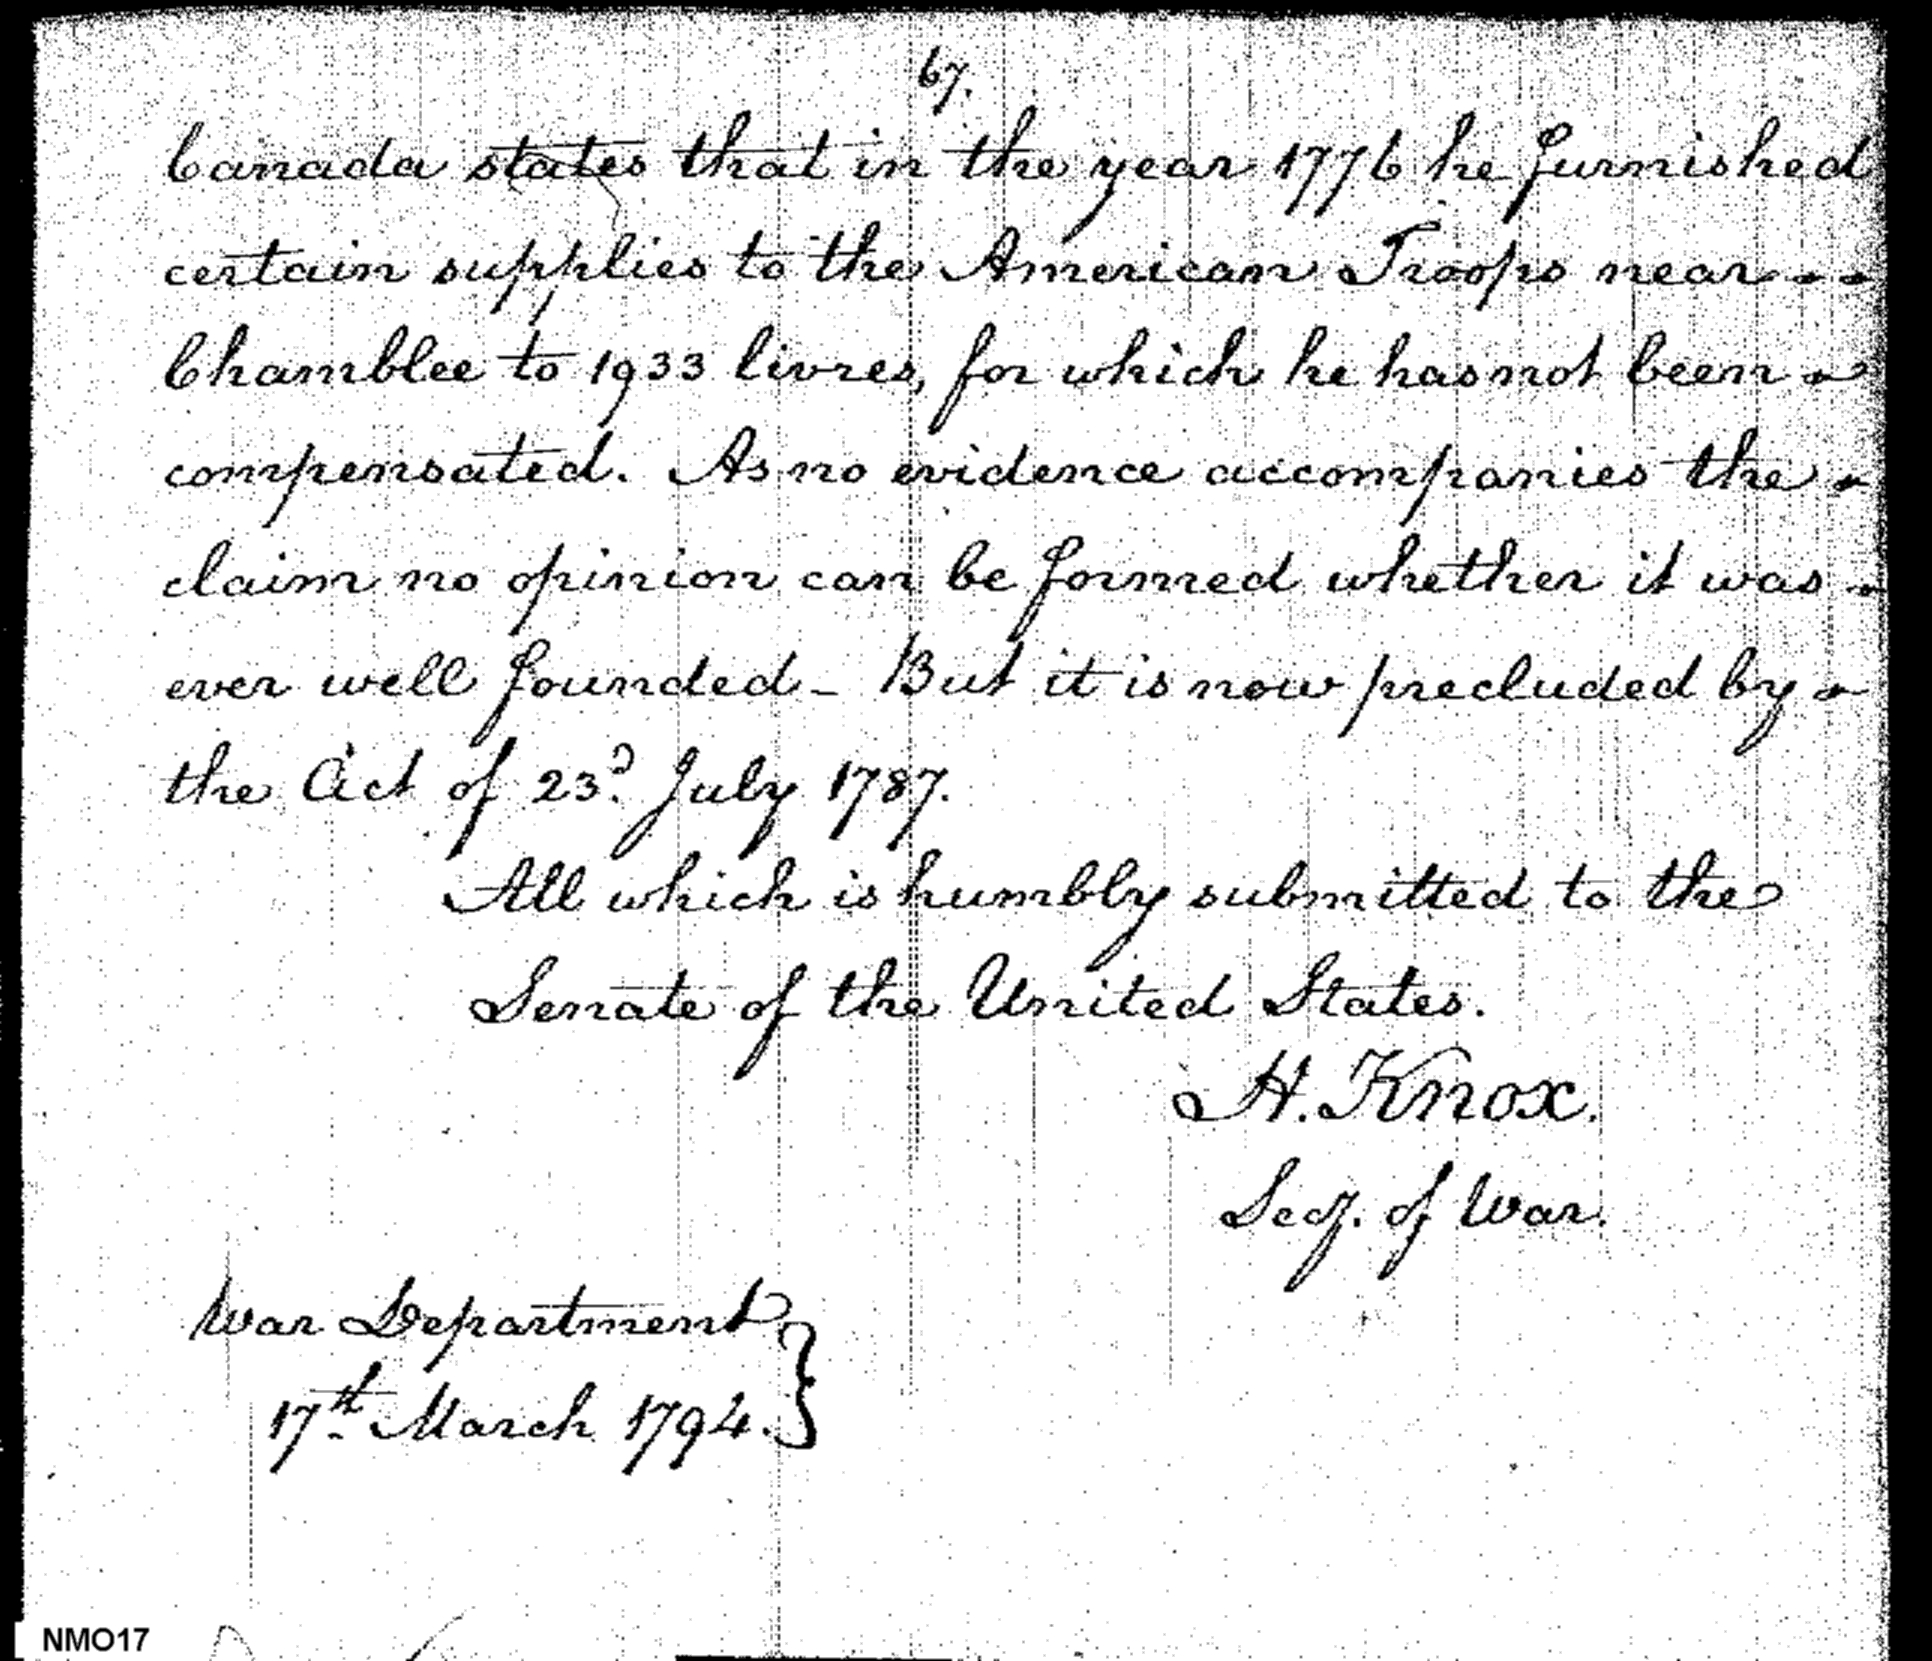 67.
Canada states that in the year 1776 he furnished
certain supplies to the American Troops near - -
Chamblee to 1933 livres, for which he has not been -
compensated. As no evidence accompanies the -
claim no opinion can be formed whether it was -
ever well founded - But it is now precluded by -
the Act of 23d. July 1787.
All which is humbly submitted to the
Senate of the United States.
H. Knox.
Secy. of War.
War Department
17th. March 1794. }
NMO17